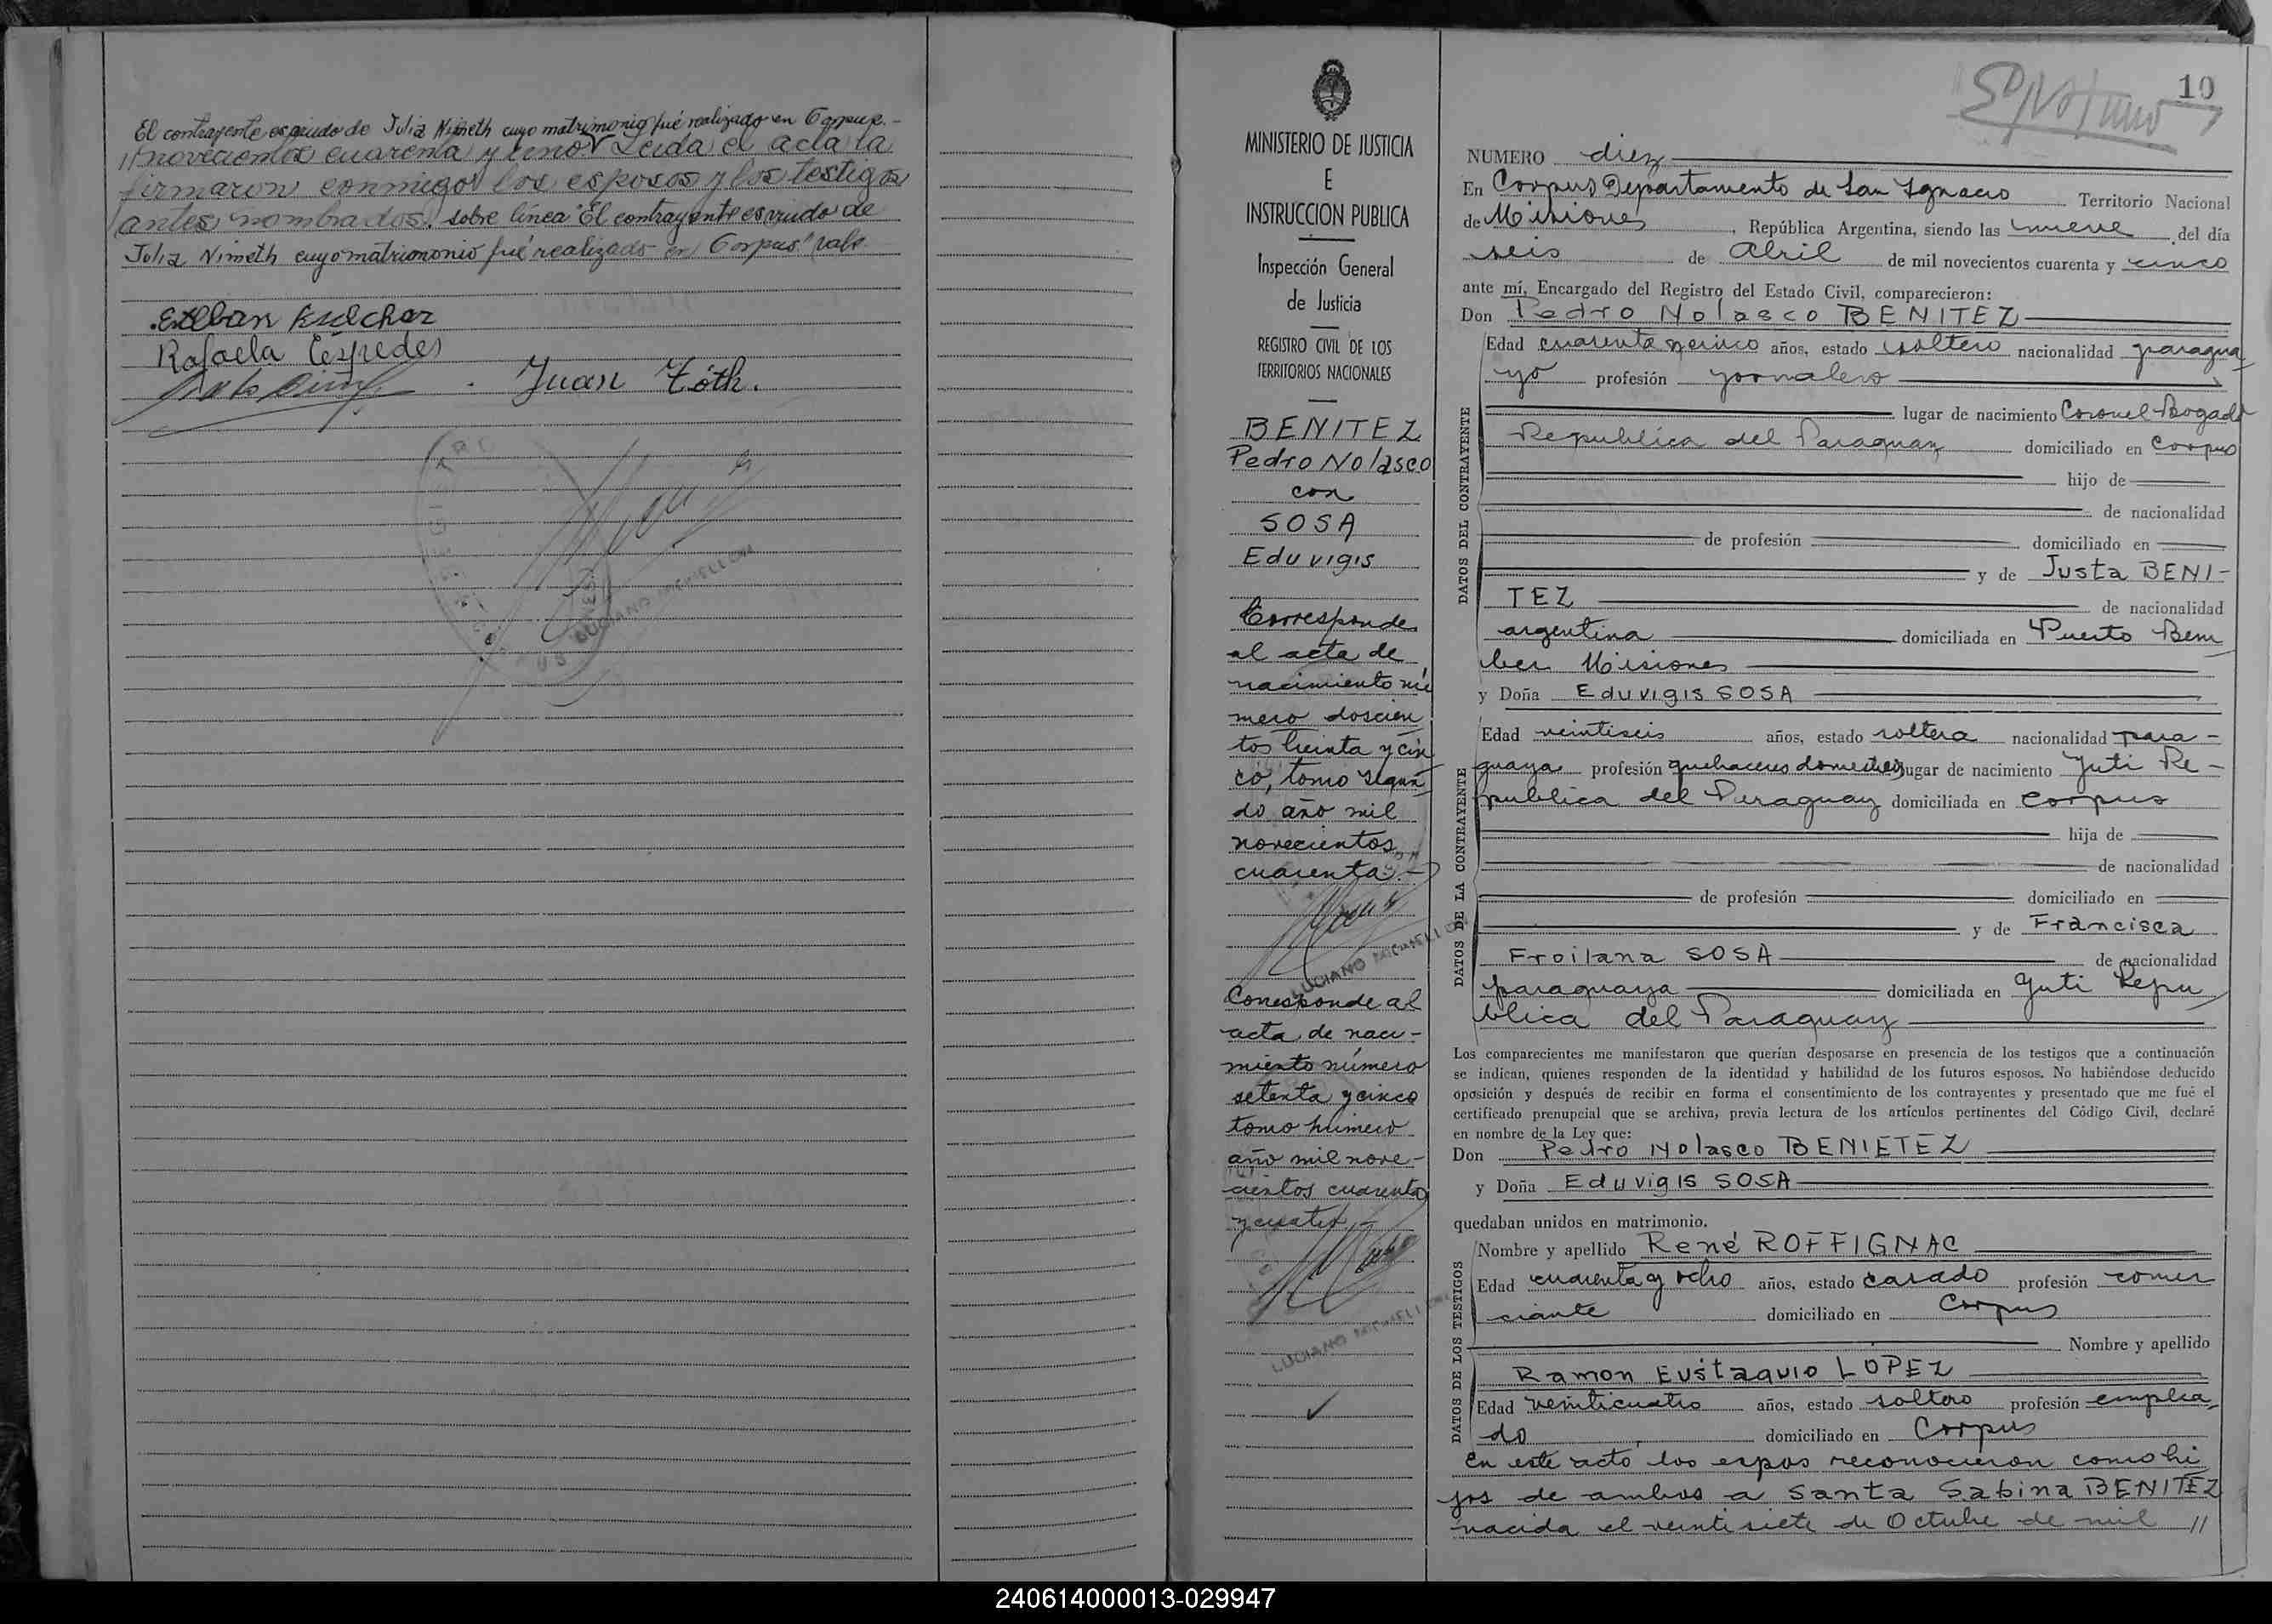 El contrayente es viudo de Julia Nimeth cuyo matrimonio fué realizado en Corpus.-
// novecientos cuarenta y uno. Leida el acta la
firmaron conmigo los esposos y los testigos
antes nombrados. sobre línea "El contrayente es viudo de
Julia Nimeth cuyo matrimonio fué realizado en Corpus" vale.
Esteban
Rafaela Céspedes
Juan Tóth.
LUCIANO MICHELLON
MINISTERIO DE JUSTICIA
E
INSTRUCCION PUBLICA
Inspección General
de Justicia
REGISTRO CIVIL DE LOS
TERRITORIOS NACIONALES
BENITEZ
Pedro Nolasco
con
SOSA
Eduvigis
Corresponde
al acta de
nacimiento nú
mero doscien
tos treinta y cin
co, tomo segun
do, año mil
novecientos
cuarenta.-
LUCIANO MICHELLON
Corresponde al
acta de naci-
miento número
setenta y cinco
tomo primero
año mil nove-
cientos cuarenta
y cuatro.-
LUCIANO MICHELLON
10
NUMERO diez
En Corpus Departamento de San Ignacio Territorio Nacional
de Misiones, República Argentina, siendo las nueve del día
seis de Abril de mil novecientos cuarenta y cinco
ante mí, Encargado del Registro del Estado Civil, comparecieron:
Don Pedro Nolasco BENITEZ
DATOS DEL CONTRAYENTE
Edad cuarenta y cinco años, estado soltero nacionalidad paragua
yo profesión jornalero
lugar de nacimiento Coronel Bogado
Republica del Paraguay domiciliado en Corpus
hijo de
de nacionalidad
de profesión domiciliado en
y de Justa BENI-
TEZ de nacionalidad
argentina domiciliada en Puerto Bem
ber Misiones
y Doña Eduvigis SOSA
DATOS DE LA CONTRAYENTE
Edad veintiseis años, estado soltera nacionalidad para-
guaya profesión quehaceres domesticos lugar de nacimiento Yuti Re-
publica del Paraguay domiciliada en Corpus
hija de
de nacionalidad
de profesión domiciliado en
y de Francisca
Froilana SOSA de nacionalidad
paraguaya domiciliada en Yuti Repu
blica del Paraguay
Los comparecientes me manifestaron que querían desposarse en presencia de los testigos que a continuación
se indican, quienes responden de la identidad y habilidad de los futuros esposos. No habiéndose deducido
oposición y después de recibir en forma el consentimiento de los contrayentes y presentado que me fué el
certificado prenupcial que se archiva, previa lectura de los artículos pertinentes del Código Civil, declaré
en nombre de la Ley que:
Don Pedro Nolasco BENIETEZ
y Doña Eduvigis SOSA
quedaban unidos en matrimonio.
DATOS DE LOS TESTIGOS
Nombre y apellido René ROFFIGNAC
Edad cuarenta y ocho años, estado casado profesión comer
ciante domiciliado en Corpus
Nombre y apellido
Ramon Eustaquio LOPEZ
Edad veinticuatro años, estado soltero profesión emplea
do domiciliado en Corpus
En este acto los espos reconocieron como hi
jos de ambos a Santa Sabina BENITEZ
nacida el veintisiete de Octubre de mil //
240614000013-029947